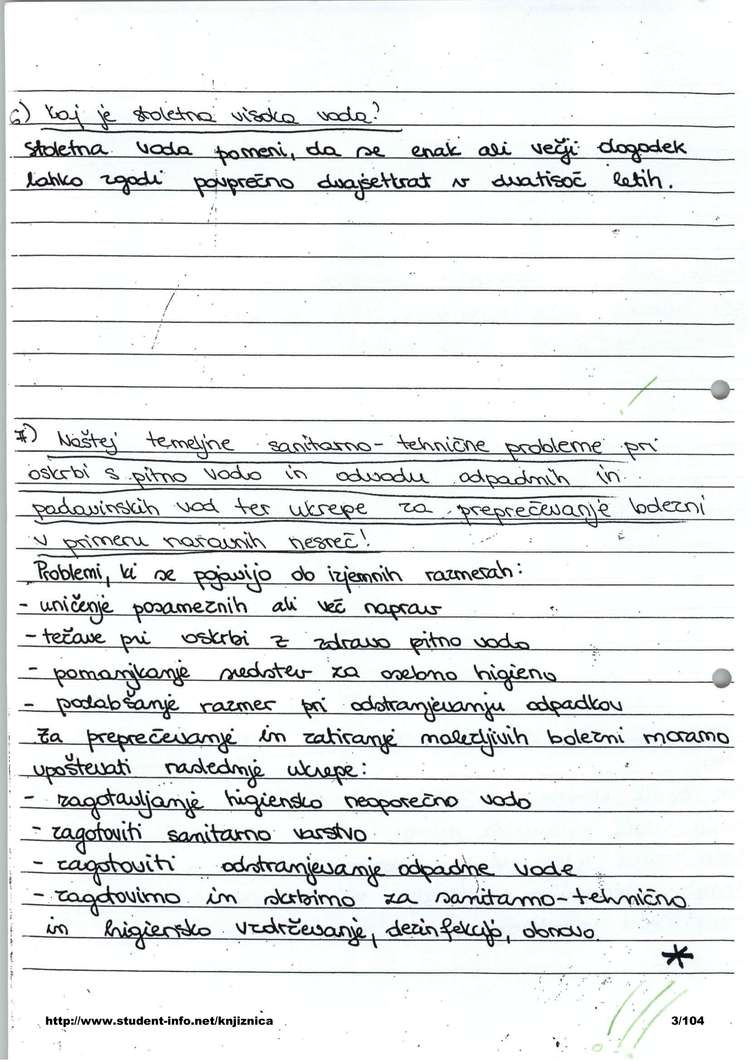 6) Kaj je stoletna visoka voda?
Stoletna voda pomeni, da se enak ali večji dogodek
lahko zgodi povprečno dvajsettrat v dvatisoč letih.
7) Naštej temeljne sanitarno-tehnične probleme pri
oskrbi s pitno vodo in odvodu odpadnih in
padavinskih vod ter ukrepe za preprečevanje bolezni
v primeru naravnih nesreč!
Problemi, ki se pojavijo ob izjemnih razmerah:
- uničenje posameznih ali več naprav
- težave pri oskrbi z zdravo pitno vodo
- pomanjkanje sredstev za osebno higieno
- poslabšanje razmer pri odstranjevanju odpadkov
Za preprečevanje in zatiranje nalezljivih bolezni moramo
upoštevati naslednje ukrepe:
- zagotavljanje higiensko neoporečno vodo
- zagotoviti sanitarno varstvo
- zagotoviti odstranjevanje odpadne vode
- zagotovimo in skrbimo za sanitarno-tehnično
in higiensko vzdrževanje, dezinfekcijo, obnovo.
*
http://www.student-info.net/knjiznica 3/104